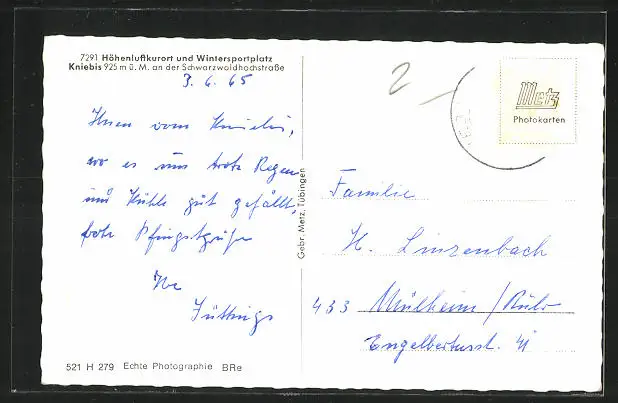 7291 Höhenluftkurort und Wintersportplatz
Kniebis 925 m ü. M. an der Schwarzwaldhochstraße
3. 6. 65
Ihnen vom Kniebis,
wo es uns trotz Regen
und Kühle gut gefällt,
frohe Pfingstgrüße
Ihre
Jüttings
521 H 279 Echte Photographie BRe
Gebr. Metz, Tübingen
2
Metz
Photokarten
Familie
H. Linzenbach
433 Mülheim/Ruhr
Engelbertusstr. 41